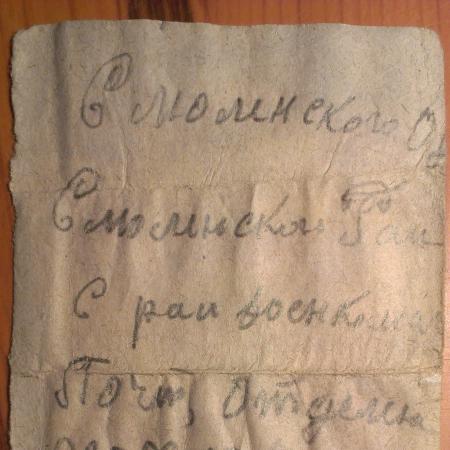 Смолинского О
Смолинского Рай
С рай военкома
Почт, Отделен